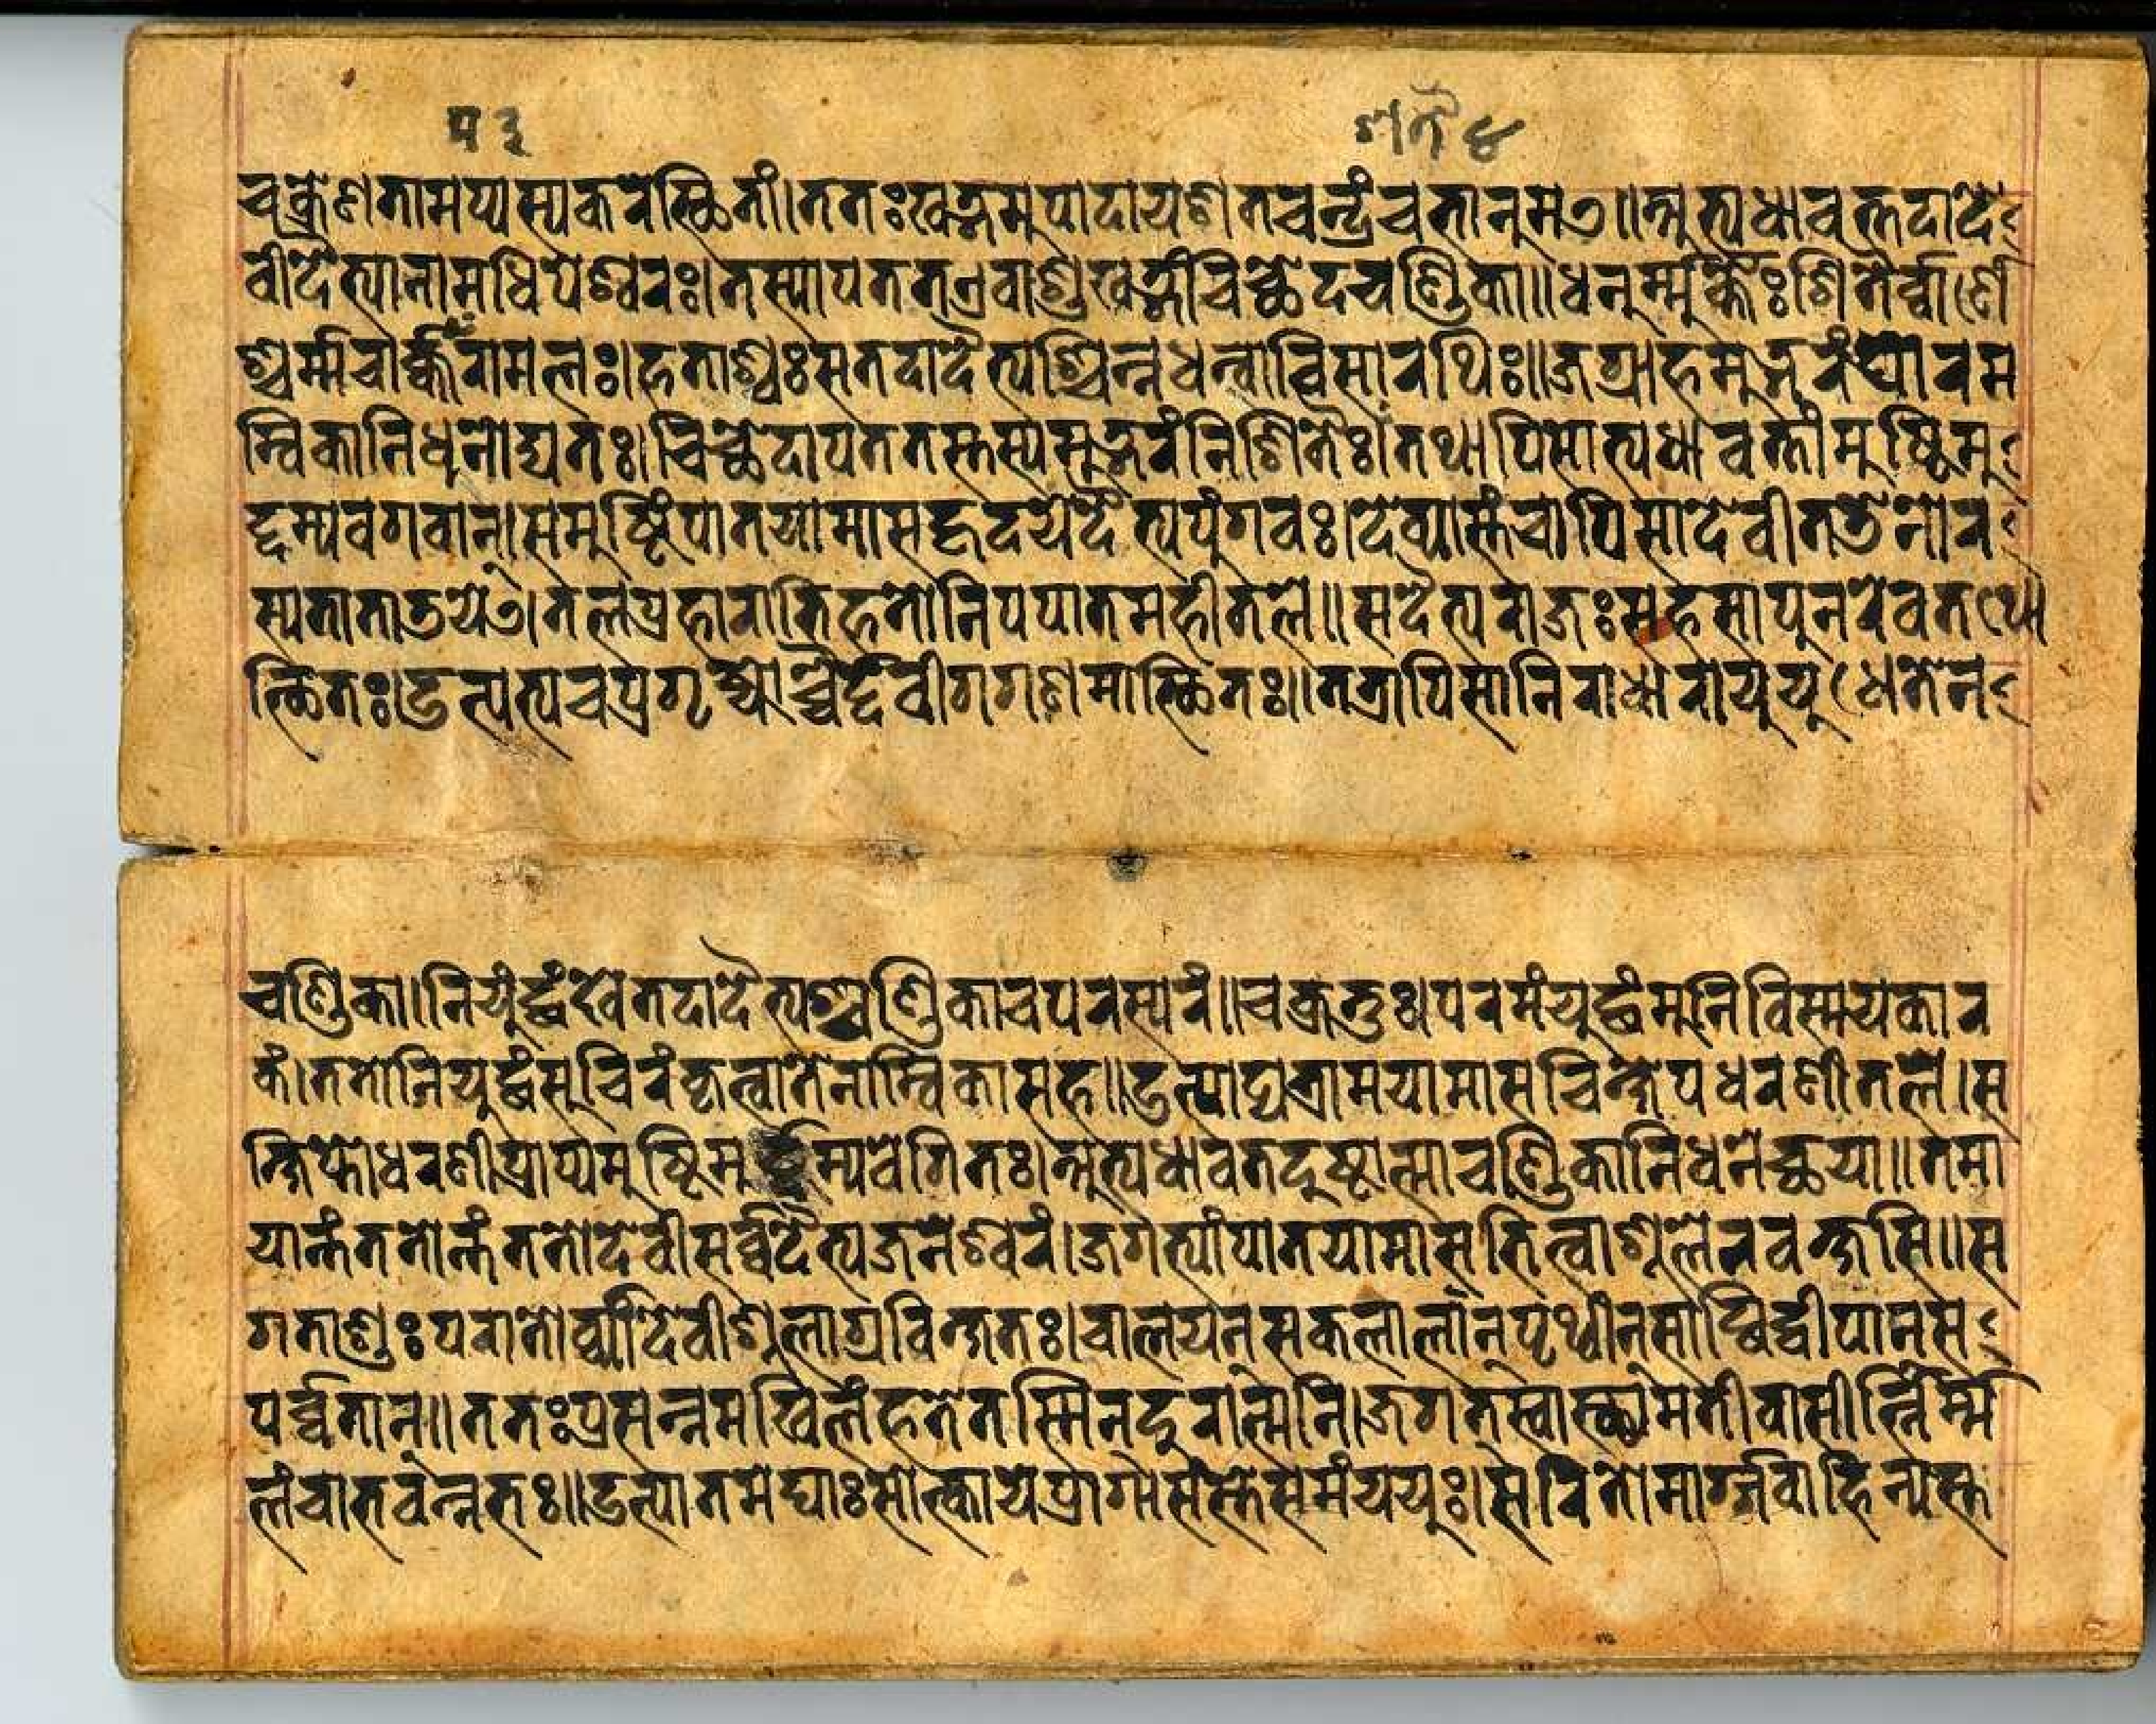 प ३ शतै ४
चक्रेणतामप्यस्यकरेस्छितां।ततःखड्गमुपादाययशतचन्द्रंचभानुमत्॥अभ्यधावत्तदादे
वीदैत्यानामधिपेश्वरः।तस्यापततएवाशुखड्गंचिच्छेदचण्डिका॥धनुर्म्मुक्तैःशितैर्व्वाणै
श्चर्म्मचार्क्ककरामलः।हताश्वःसतदादैत्यश्छिन्नधन्वाविसारथिः॥जग्राहमुद्गरंघोरम
म्विकानिधनोद्यतः।चिच्छेदापततस्तस्यमुद्गरंनिशितैः।तथापिसोभ्यधावत्तांमुष्टिमु
द्दम्यवगवान्।समुष्टिंपातयामासहृदयेदैत्यपुंगवः।देव्यास्तंचापिसादेवीतलेनोर
स्यताताडयेत्।तलप्रहाराभिहतोनिपपातमहीतले॥सदैत्यराजःसहसापुनरेवतथो
त्छितः।उत्पत्यचप्रगृह्योच्चैर्द्देवीगगणमास्छितः॥तत्रापिसानिराधारायुयुधेतेन
चण्डिका॥नियुद्धंखेतदादैत्यश्चण्डिकाचपरस्परं॥चक्रतुः।परमंयुद्धंमुनिविस्मयकार
कं।ततोनियुद्धंसुचिरंकृत्वातेनाम्विकासह॥उत्पाट्यभ्रामयामासचिक्षेपधरणीतले।स
क्षिप्तोधरणीप्राप्यमुष्टिमुद्दम्यवेगितः।अभ्यधावतदुष्टात्माचण्डिकानिधनेच्छया॥तमा
यान्तंततोन्तंततोदेवीसर्व्वदैत्यजनेश्वरं।जगत्यांपातयामासभित्वाशूलेनवक्षसि॥स
गताशुःपरातोर्व्यांदेवीशूलाग्रविक्षतः।चालयन्सकलालांनपृथ्वीनसाब्धिद्वीपान्स
पर्व्वतान्॥ततःप्रसन्नमखिलंहतेतस्मिनदुरात्मनि।जगत्स्वास्छ्यमतीवासीन्निर्म्म
लंचाभवन्नभः॥उत्पातमेघाःसोल्कायेप्रागासंस्तेसमंययुः।सरितोमार्ग्गवाहिन्यस्त